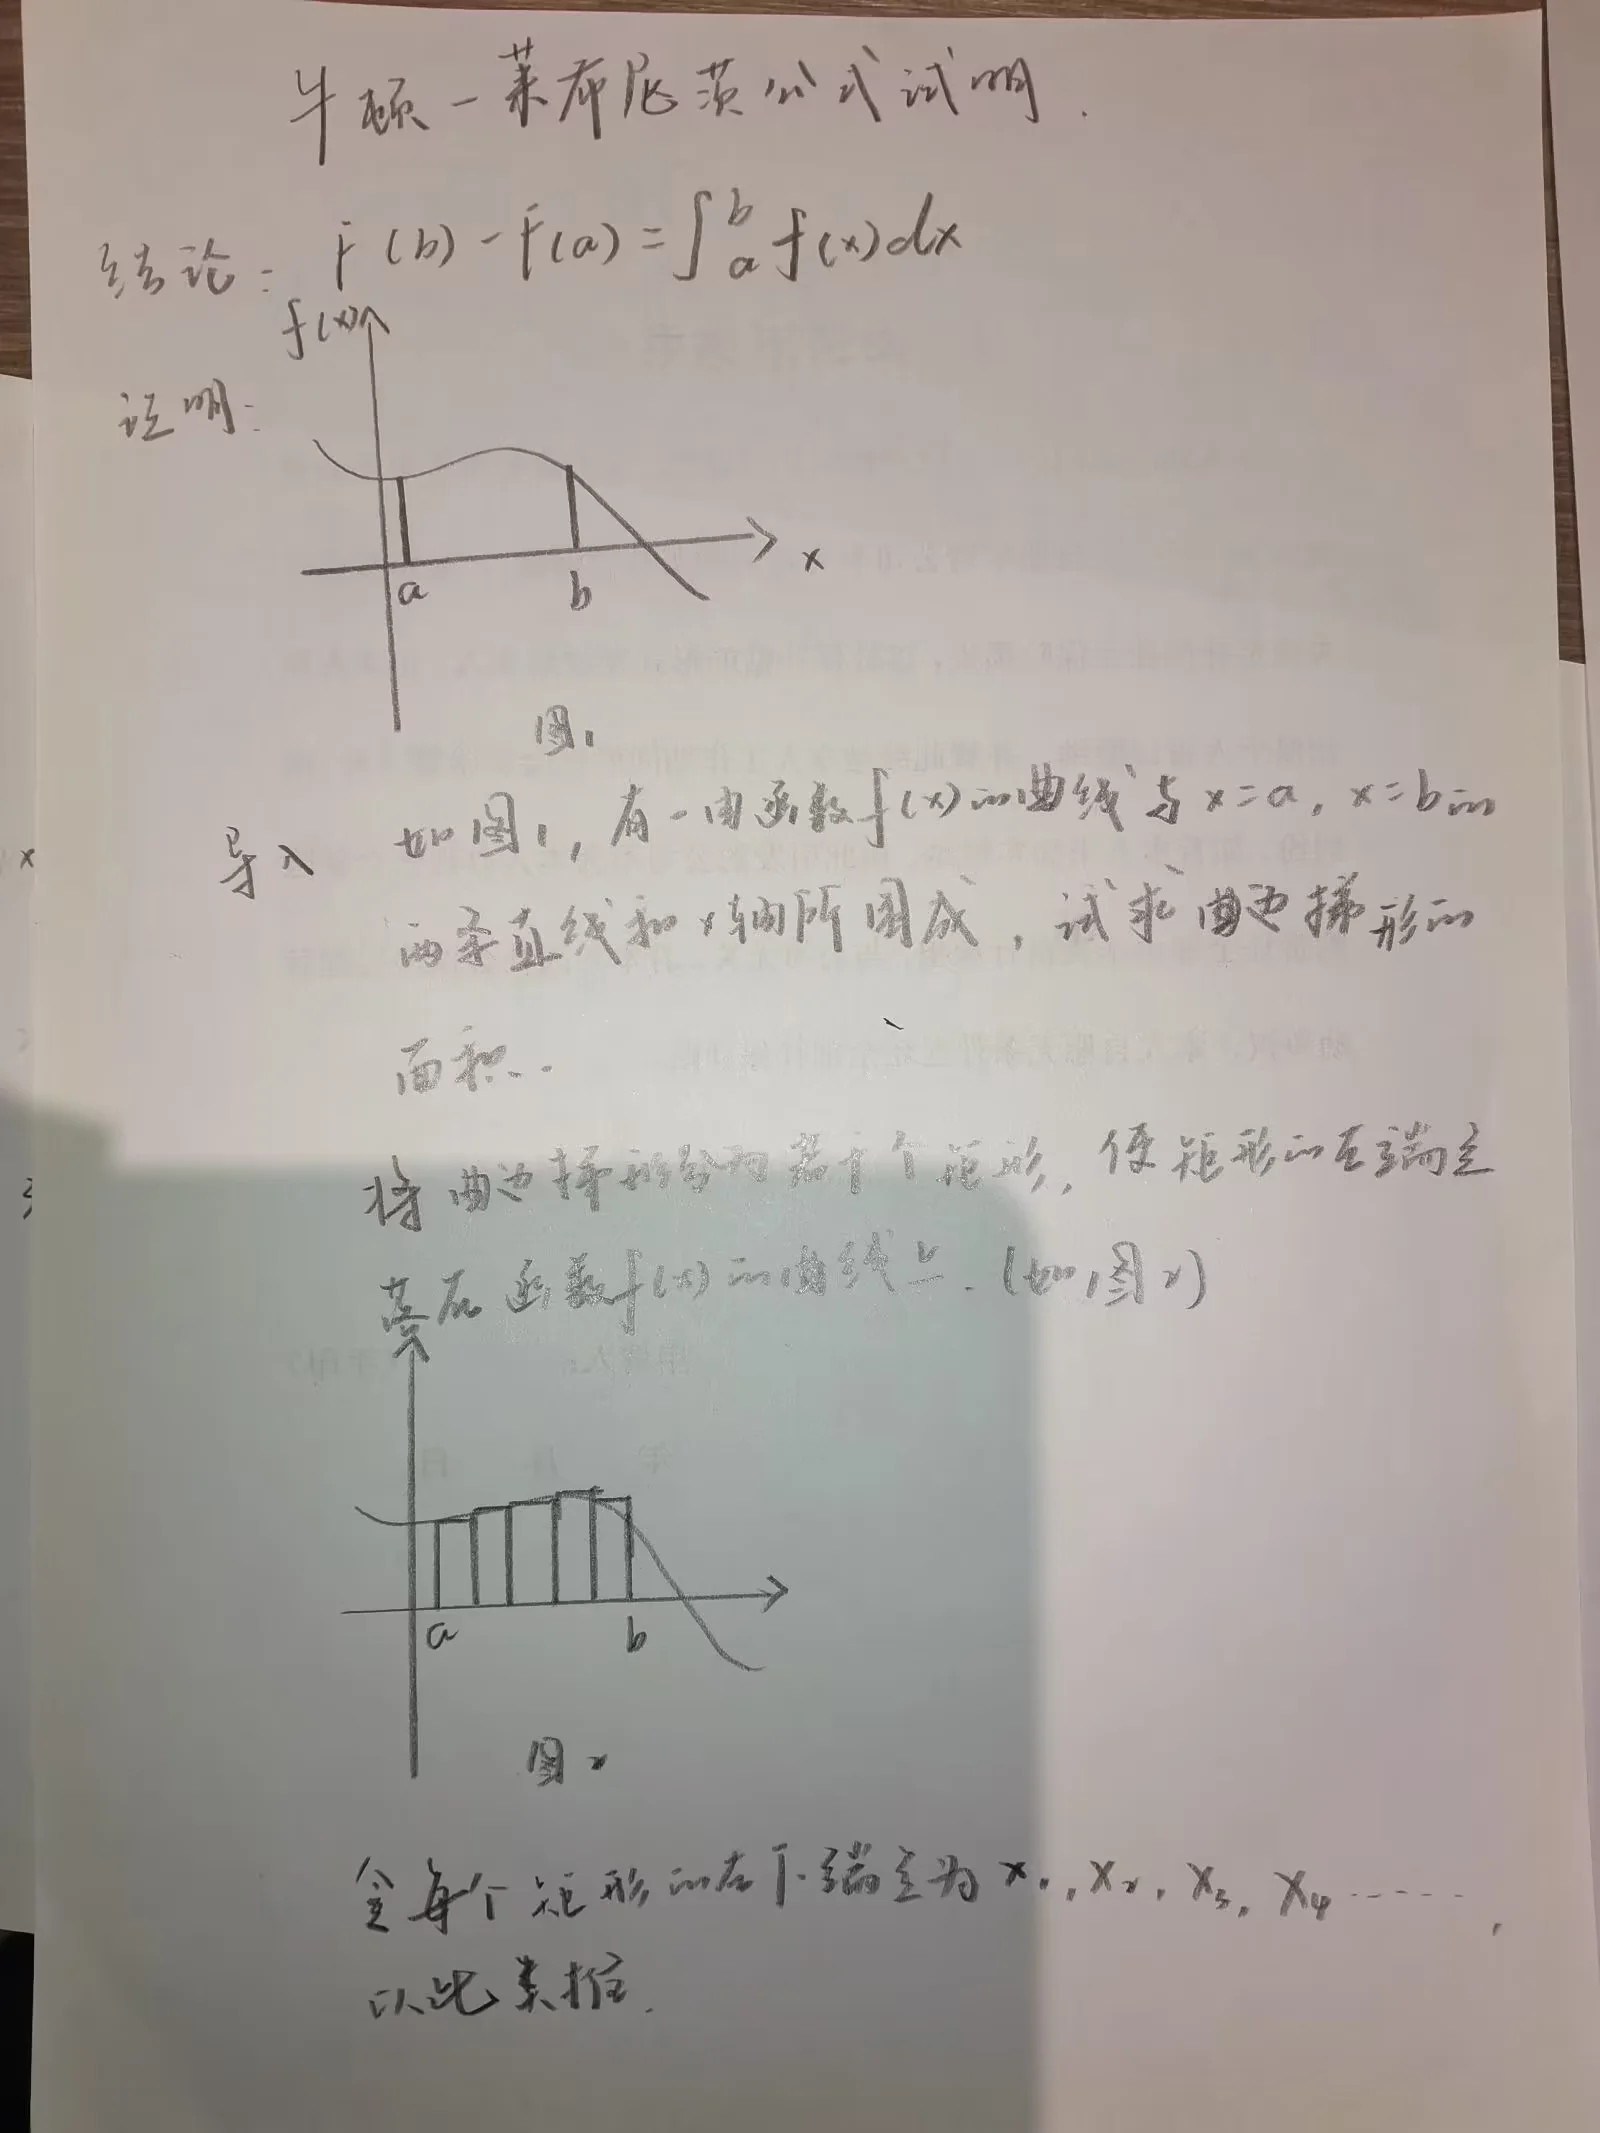 牛顿-莱布尼茨公式试明.
结论: F(b)-F(a)=∫_a^b f(x)dx
f(x)
证明:
x
a
b
图1
导入 如图1, 有一由函数f(x)的曲线与x=a, x=b的
两条直线和x轴所围成, 试求曲边梯形的
面积..
将曲边梯形分为若干个矩形, 使矩形的左端点
落在函数f(x)的曲线上. (如图2)
a
b
图2
令每个矩形的左下端点为x₁, x₂, x₃, x₄ ……,
以此类推.